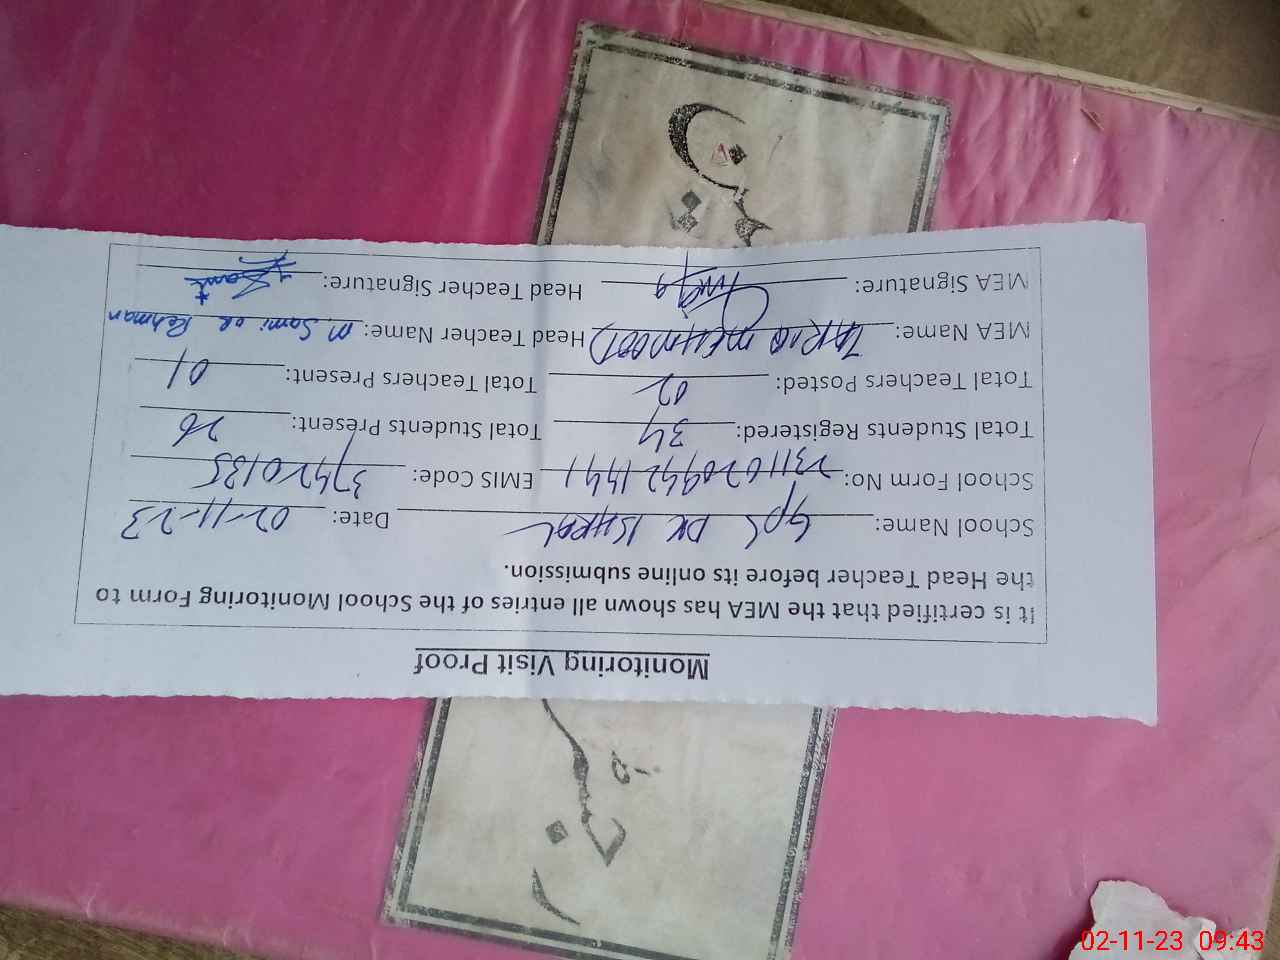 Monitoring Visit Proof
It is certified that the MEA has shown all entries of the School Monitoring Form to
the Head Teacher before its online submission.
School Name: GPS DK Date: 02-11-23
School Form No: 23110209421441 EMIS Code: 37420135
Total Students Registered: 34 Total Students Present: 26
Total Teachers Posted: 02 Total Teachers Present: 01
MEA Name: TARIQ MEHMOOD Head Teacher Name: M. Sami ur Rehman
MEA Signature: Head Teacher Signature: Sami
02-11-23 09:43